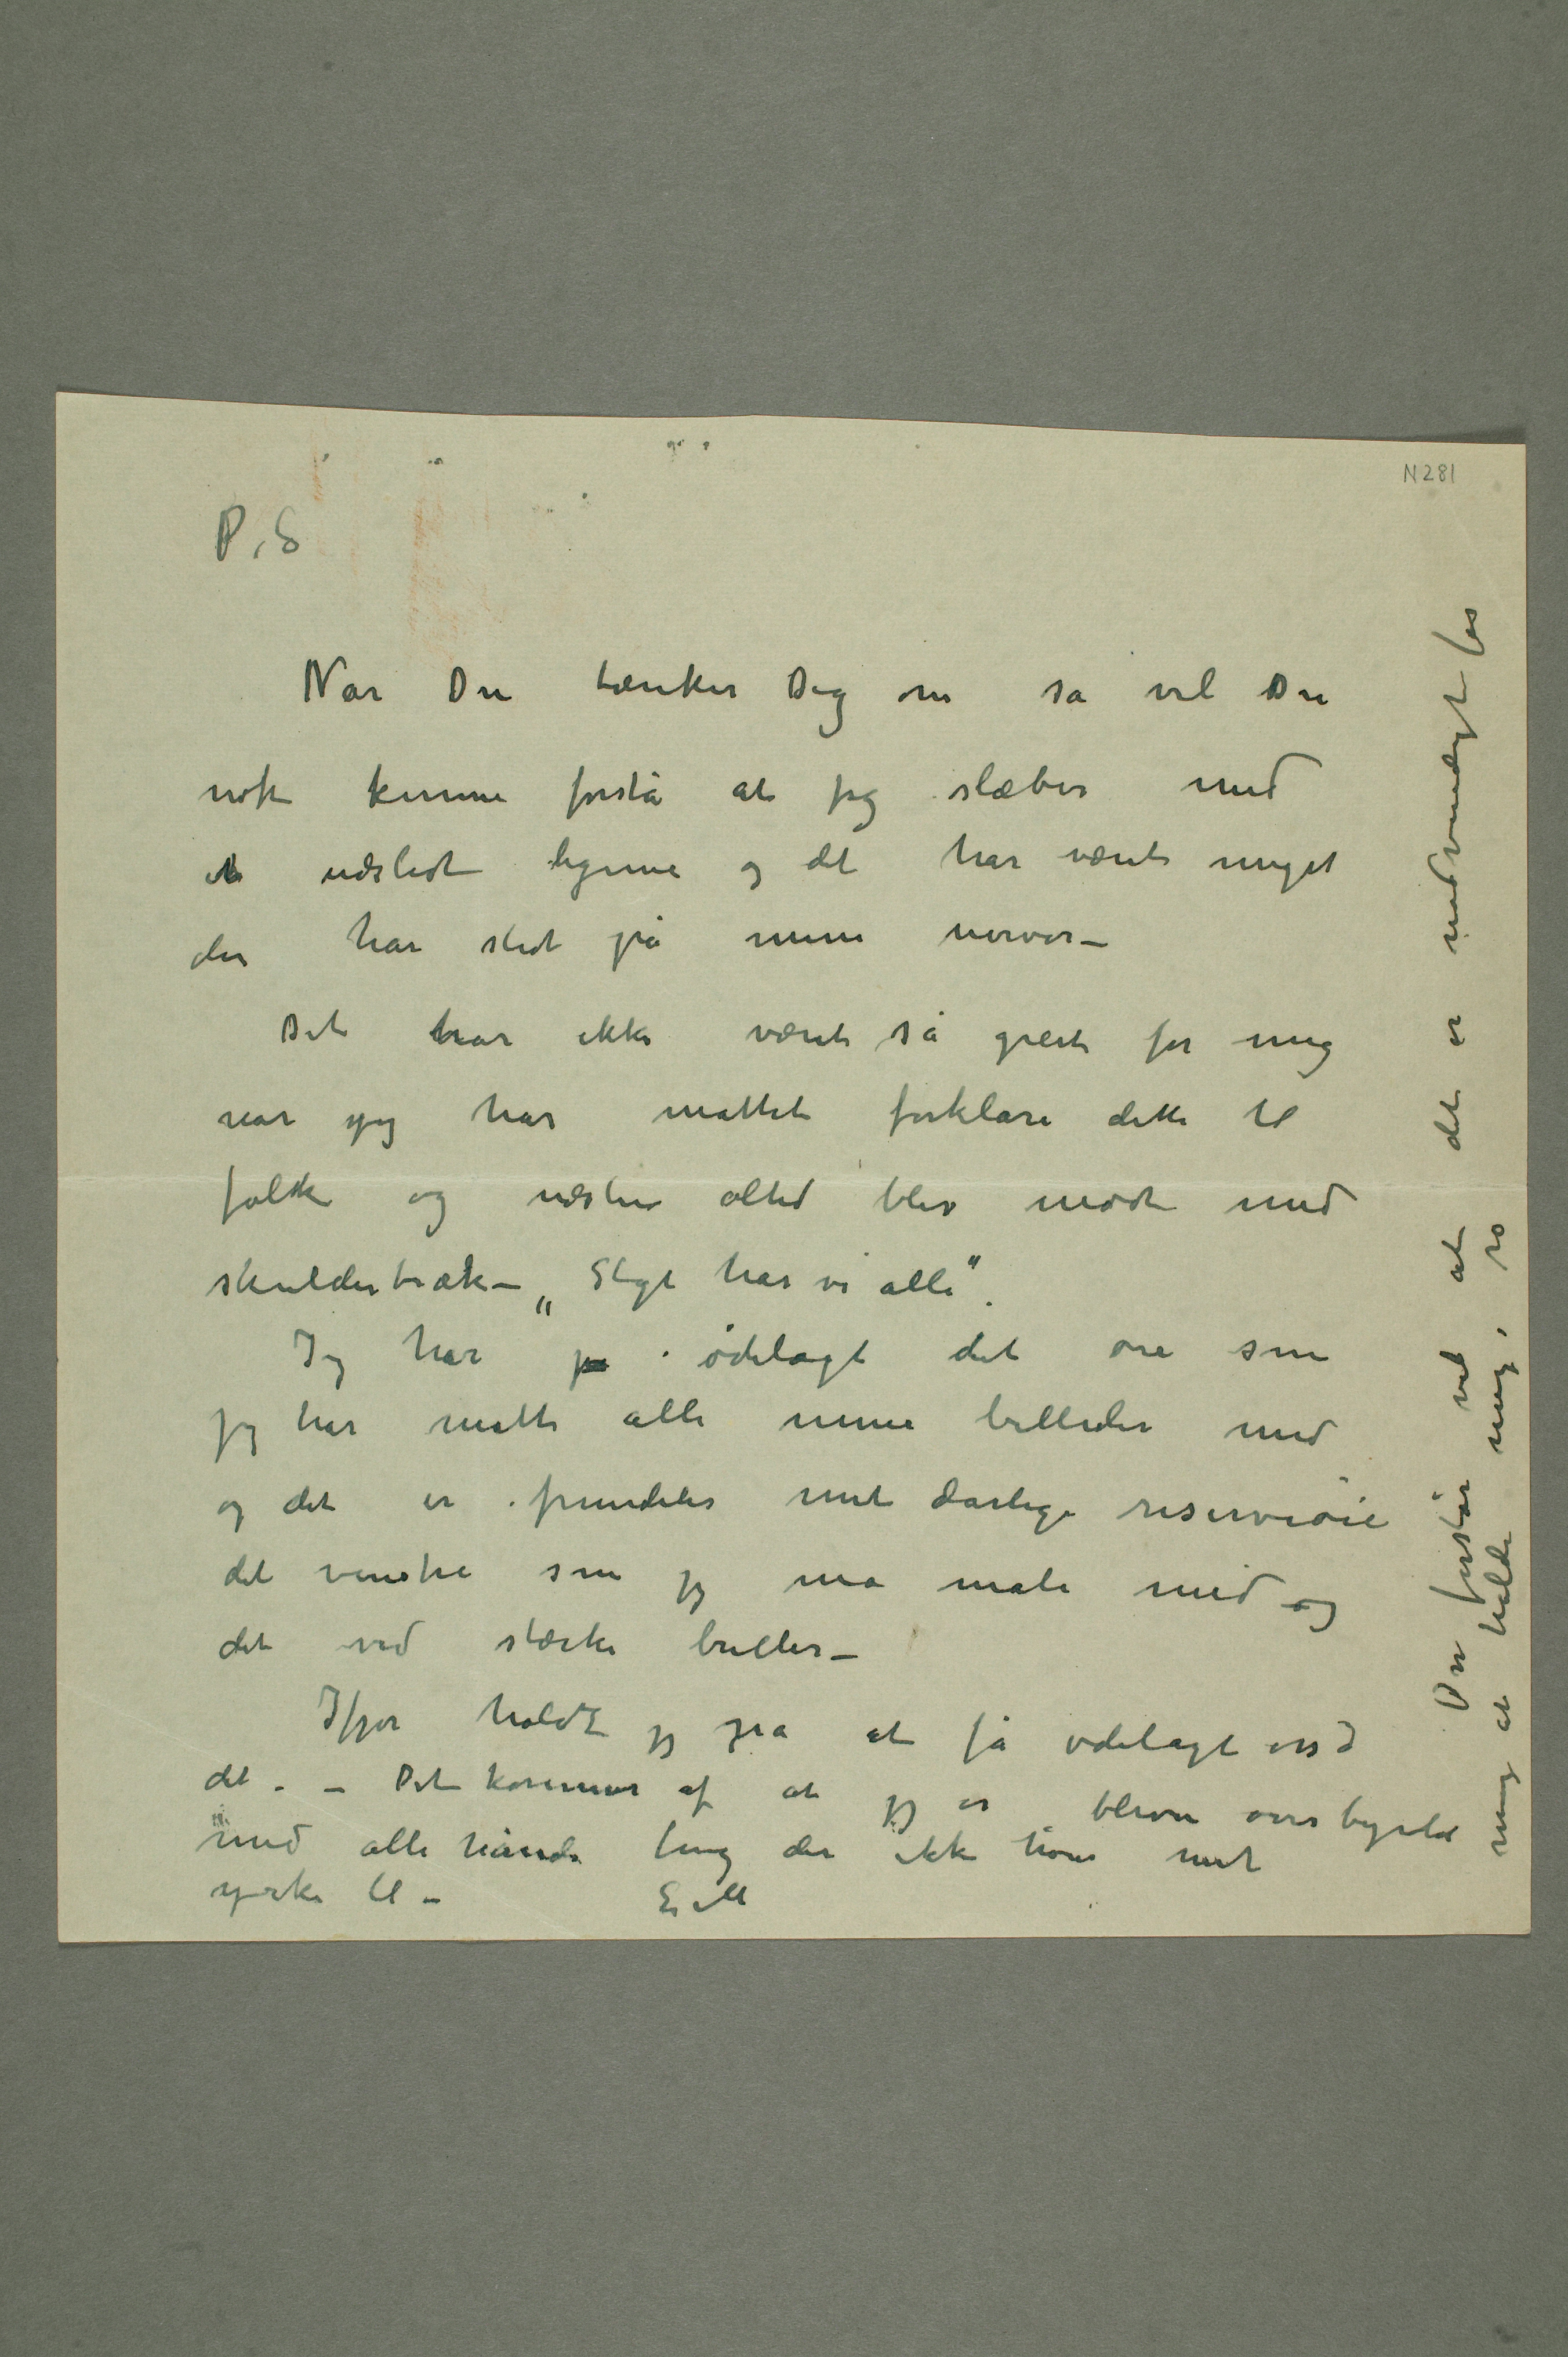 N 281
P.S
Nar Du tænker Dig om sa vil Du
nok kunne forstå at jeg slæber med
et udslidt legeme og det har været meget
der har slidt på mine nerver –
Det har ikke været så greit for mig
nar jeg har måttet forklare dette til
folk og næsten altid blev mødt med
skuldertræk – „Sligt har vi alle".
Jeg har ødelagt det øie som
jeg har malt alle mine billeder med
og det er fremdeles mit darlige reserveøie
det venstre som jeg ma male med og
det ved stærke briller –
Ifjor holdt jeg pa at få ødelagt også
det. – Det kommer af at jeg er bleven overbyrdet
med alle hånde ting der ikke hører mit
yrke til – E M
Du forstår vel at det er nødvendigt for
mig at holde mig i ro